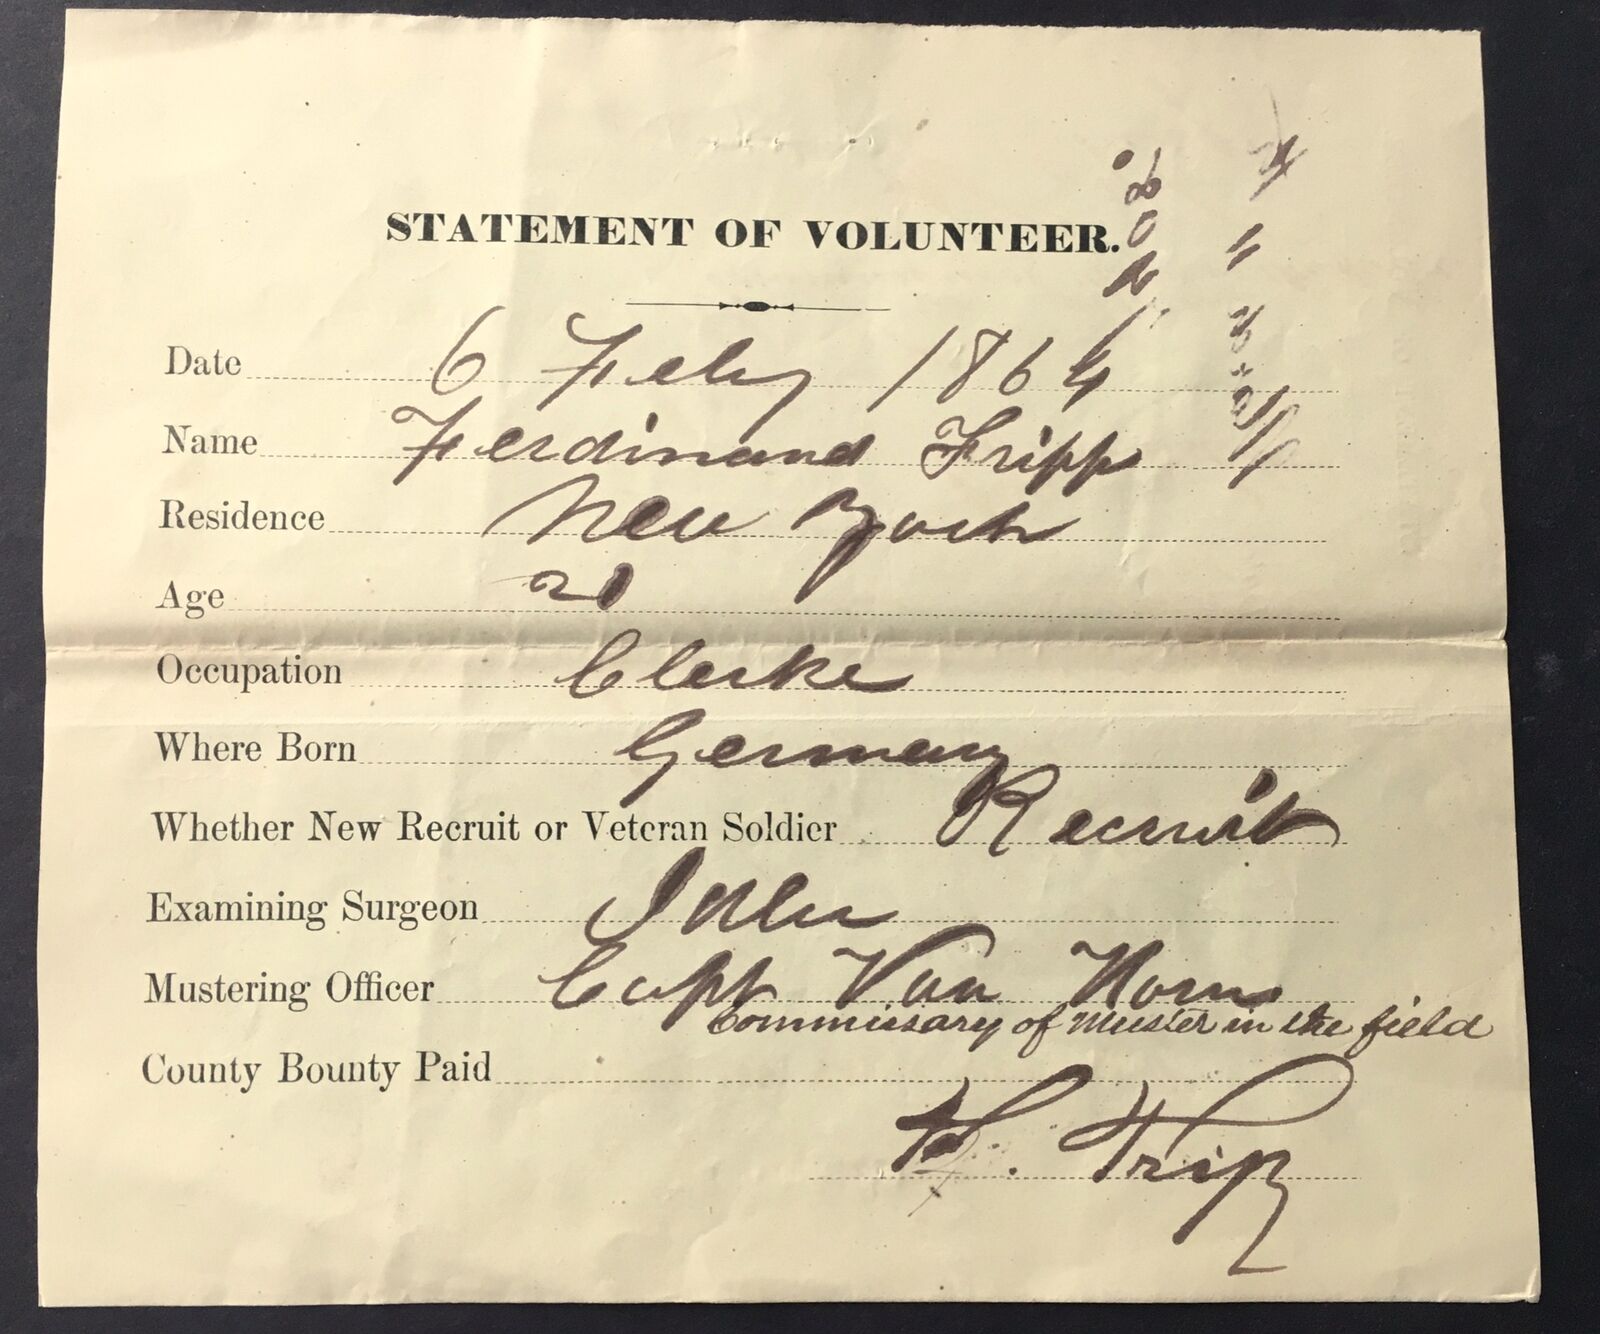 STATEMENT OF VOLUNTEER.
Date 6 Feby 1864
Name Ferdinand Fripp
Residence New York
Age 21
Occupation Clerke
Where Born Germany
Whether New Recruit or Veteran Soldier Recruit
Examining Surgeon
Mustering Officer Capt Van Horn
Commissary of Muster in the field
County Bounty Paid